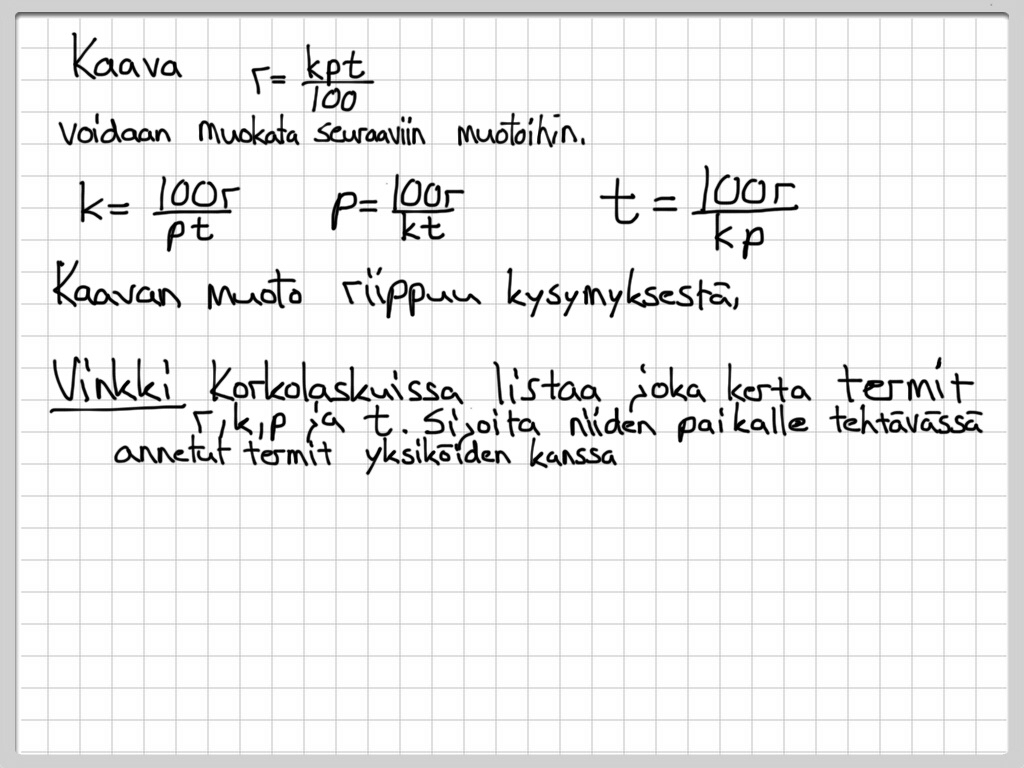 Kaava r = kpt/100
voidaan muokata seuraaviin muotoihin.
k = 100r/pt p = 100r/kt t = 100r/kp
Kaavan muoto riippuu kysymyksestä.
Vinkki Korkolaskuissa listaa joka kerta termit
r, k, p ja t. Sijoita niiden paikalle tehtävässä
annetut termit yksiköiden kanssa